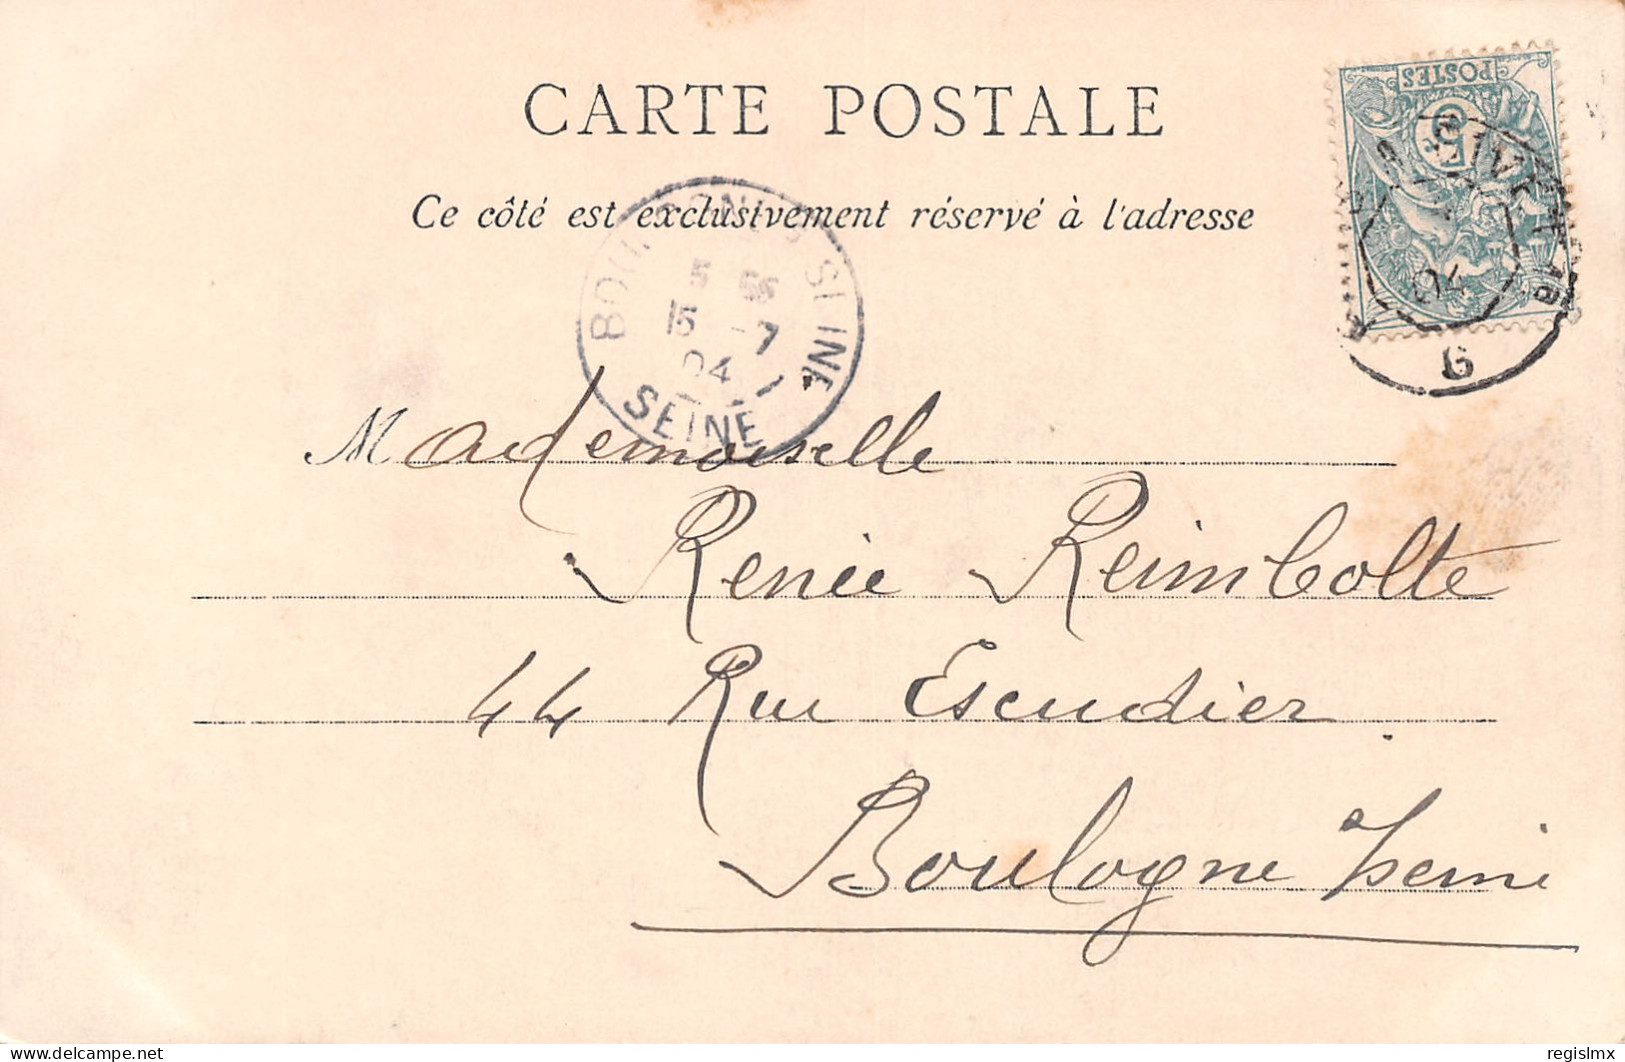 CARTE POSTALE
Ce côté est exclusivement réservé à l'adresse
POSTES
5
04
6
5
15 -7
04
SEINE
Mademoiselle
Renée Reimbolte
44 Rue Escudier
Boulogne s/Seine
delcampe.net
regislmx